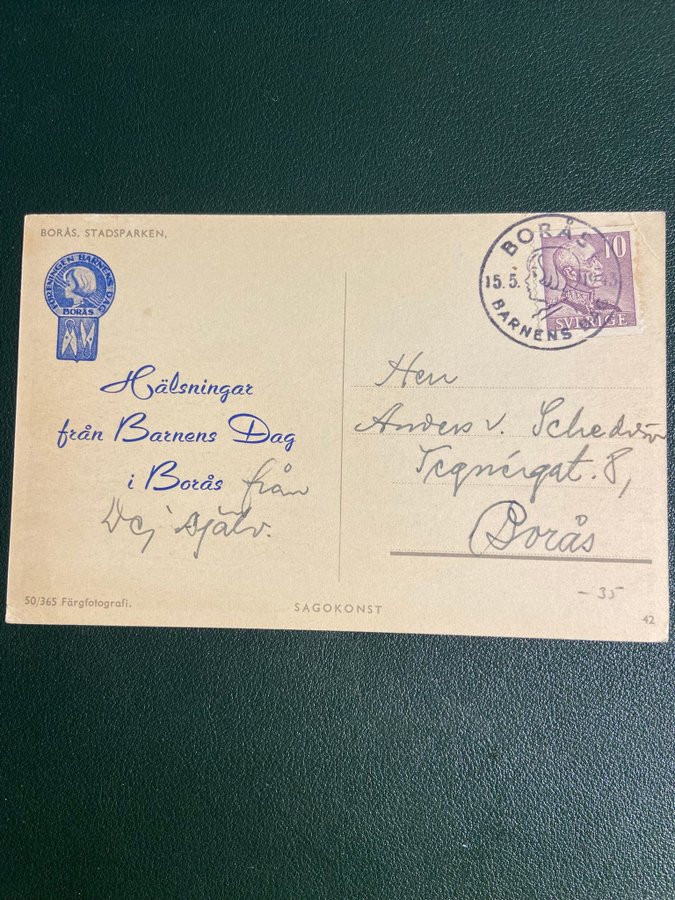 BORÅS. STADSPARKEN.
FÖRENINGEN BARNENS DAG
BORÅS
BORÅS
15.5.
BARNENS DAG
10
SVERIGE
Hälsningar
från Barnens Dag
i Borås från
Dej själv.
Herr
Anders v. Schedvin
Tegnérgat. 8,
Borås
50/365 Färgfotografi.
SAGOKONST
- 35
42